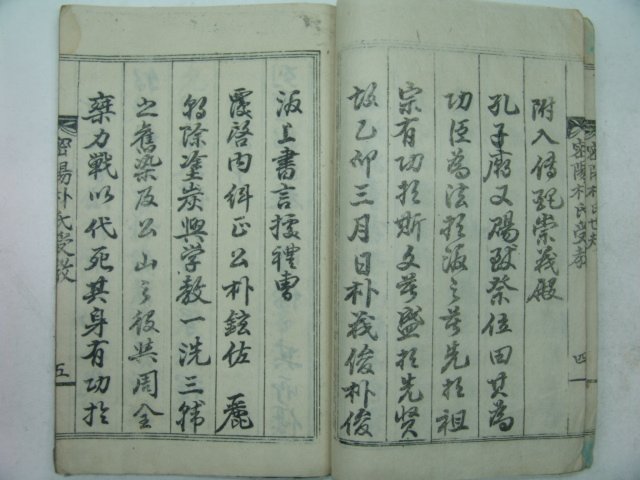 附入傳冊崇義殿
孔子廟又賜致祭位田其為
功臣為法於後之昔先於祖
宗有功於斯文若盛於先賢
故乙卯三月日朴義俊朴俊
上書言據禮曹
覆啓內糾正公朴鉉佐 麗
朝除塗炭興學教一洗三韓
之舊染及公山之役與周全
棄力戰以代死其身有功於
密陽朴氏受教
四
密陽朴氏受教
五